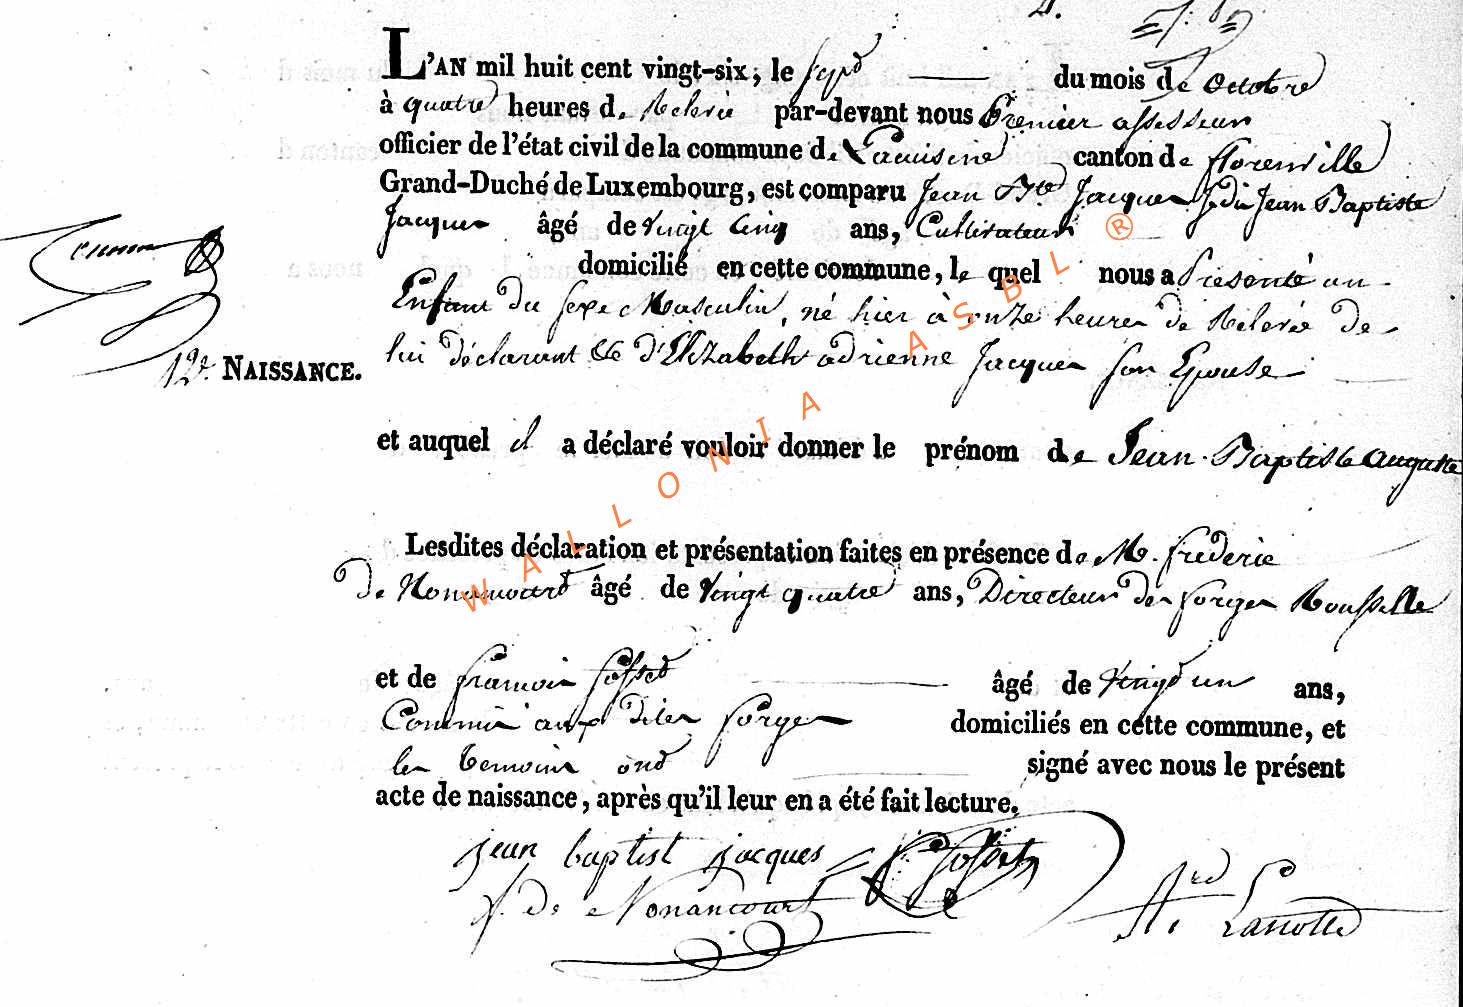 L'AN mil huit cent vingt-six, le sept du mois de octobre
à quatre heures de Relevée par-devant nous Premier assesseur
officier de l'état civil de la commune de Lacuisine canton de florenville
Grand-Duché de Luxembourg, est comparu Jean Bte Jacques f. du Jean Baptiste
Jacques âgé de Vingt Cinq ans, Cultivateur
domicilié en cette commune, le quel nous a Présenté un
Enfant du sexe Masculin, né hier à onze heures de Relevée de
lui déclarant & d'Elizabeth adrienne Jacques son Epouse
12e NAISSANCE.
et auquel il a déclaré vouloir donner le prénom de Jean-Baptiste auguste
Lesdites déclaration et présentation faites en présence de Mr. fréderic
de Nonancourt âgé de Vingt quatre ans, Directeur des forges Rousselle
et de francois Gosset âgé de Vingt un ans,
Commis aux dites forges domiciliés en cette commune, et
les temoins ont signé avec nous le présent
acte de naissance, après qu'il leur en a été fait lecture.
jean baptist jacques F Gosset
f. de Nonancourt
WALLONIA ASBL ®